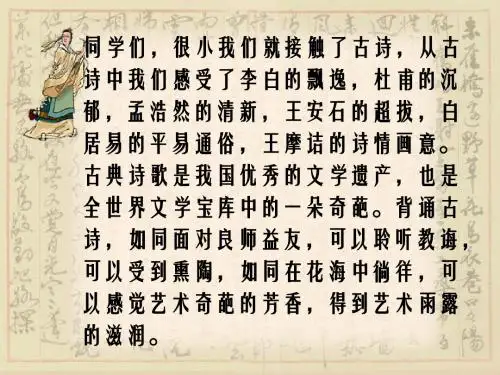 同学们，很小我们就接触了古诗，从古
诗中我们感受了李白的飘逸，杜甫的沉
郁，孟浩然的清新，王安石的超拔，白
居易的平易通俗，王摩诘的诗情画意。
古典诗歌是我国优秀的文学遗产，也是
全世界文学宝库中的一朵奇葩。背诵古
诗，如同面对良师益友，可以聆听教诲，
可以受到熏陶，如同在花海中徜徉，可
以感觉艺术奇葩的芳香，得到艺术雨露
的滋润。